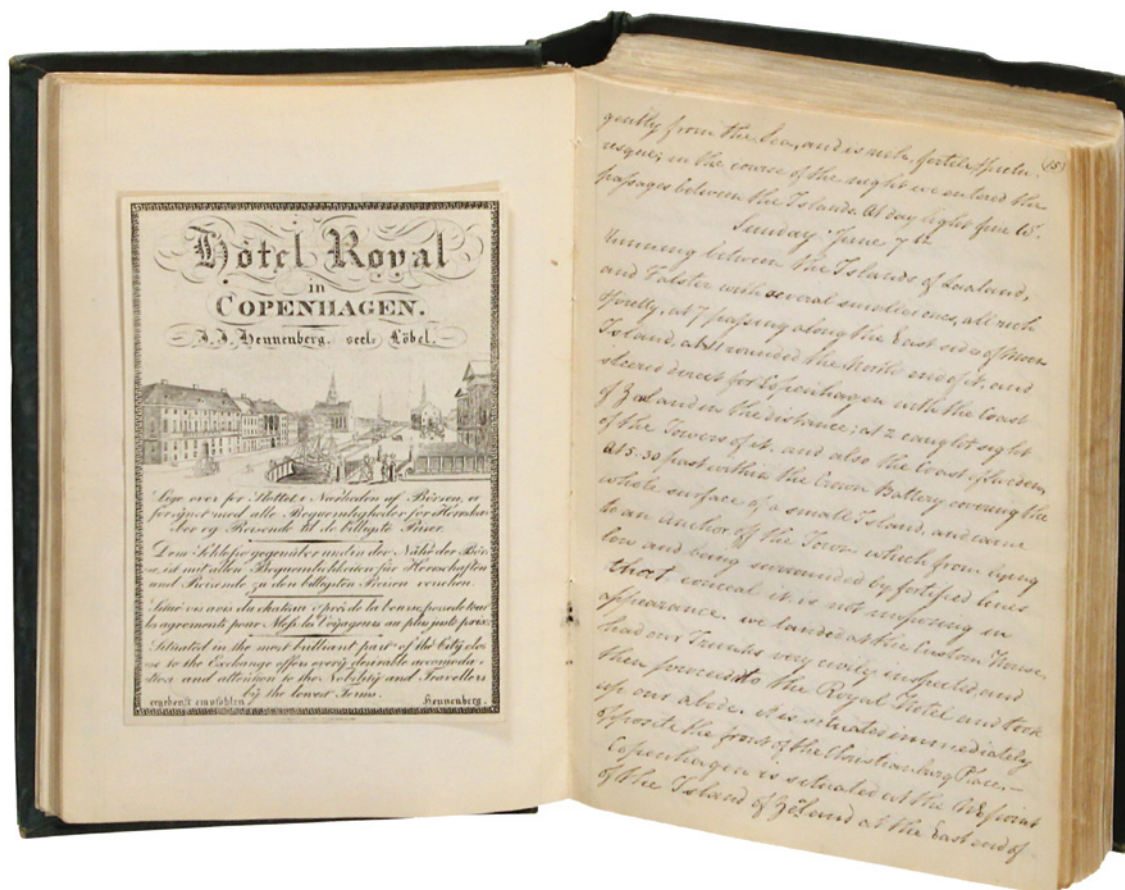 Hôtel Royal
in
COPENHAGEN.
J. J. Hennenberg. seel. Löbel.
Lige over for Slottet i Nærheden af Börsen, er
forsÿnet med alle Beqvemligheder for Herska-
ber og Reisende til de billigste Priser.
Dem Schlosse gegenüber und in der Nähe der Bör-
se, ist mit allen Bequemlichkeiten für Herrschaften
und Reisende zu den billigsten Preisen versehen.
Situé vis avis du chateau & près de la bourse possede tous
les agrements pour Mess. les Voÿageurs au plus juste prix.
Situated in the most brilliant part of the Citÿ clo-
se to the Exchange offers everÿ desirable accomoda-
tion and attention to the Nobilitÿ and Travellers
bÿ the lowest Terms.
ergebenst empfohlen Hennenberg.
(15)
gently from the Sea, and is rich, fertile & pictu-
resque; in the course of the night we entered the
passages between the Islands. At day light June 15.
Sunday June 7th
Running between the Islands of Laaland,
and Falster with several smaller ones, all rich
& pretty, at 7 passing along the East side of Moen
Island, at 11 rounded the North end of it, and
steered direct for Copenhagen with the Coast
of Zealand in the distance; at 2 caught sight
of the Towers of it, and also the Coast of Sweden,
at 5.30 past within the Crown Battery covering the
whole surface of a small Island, and came
to an anchor off the Town which from lying
low and being surrounded by fortified lines
that conceal it is not imposing in
appearance. we landed at the Custom House,
had our Trunks very civilly inspected, and
then proceeded to the Royal Hotel and took
up our abode. it is situated immediately
opposite the front of the Christianburg Place. –
Copenhagen is situated at the point
of the Island of Zeland at the East end of